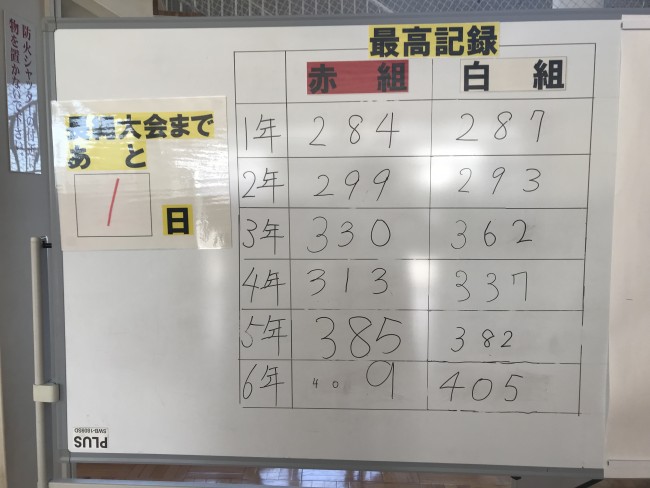 防火シャッター
物を置かないで下さい
最高記録
赤組 白組
1年 284 287
2年 299 293
3年 330 362
4年 313 337
5年 385 382
6年 409 405
大会まで
あと
1日
PLUS